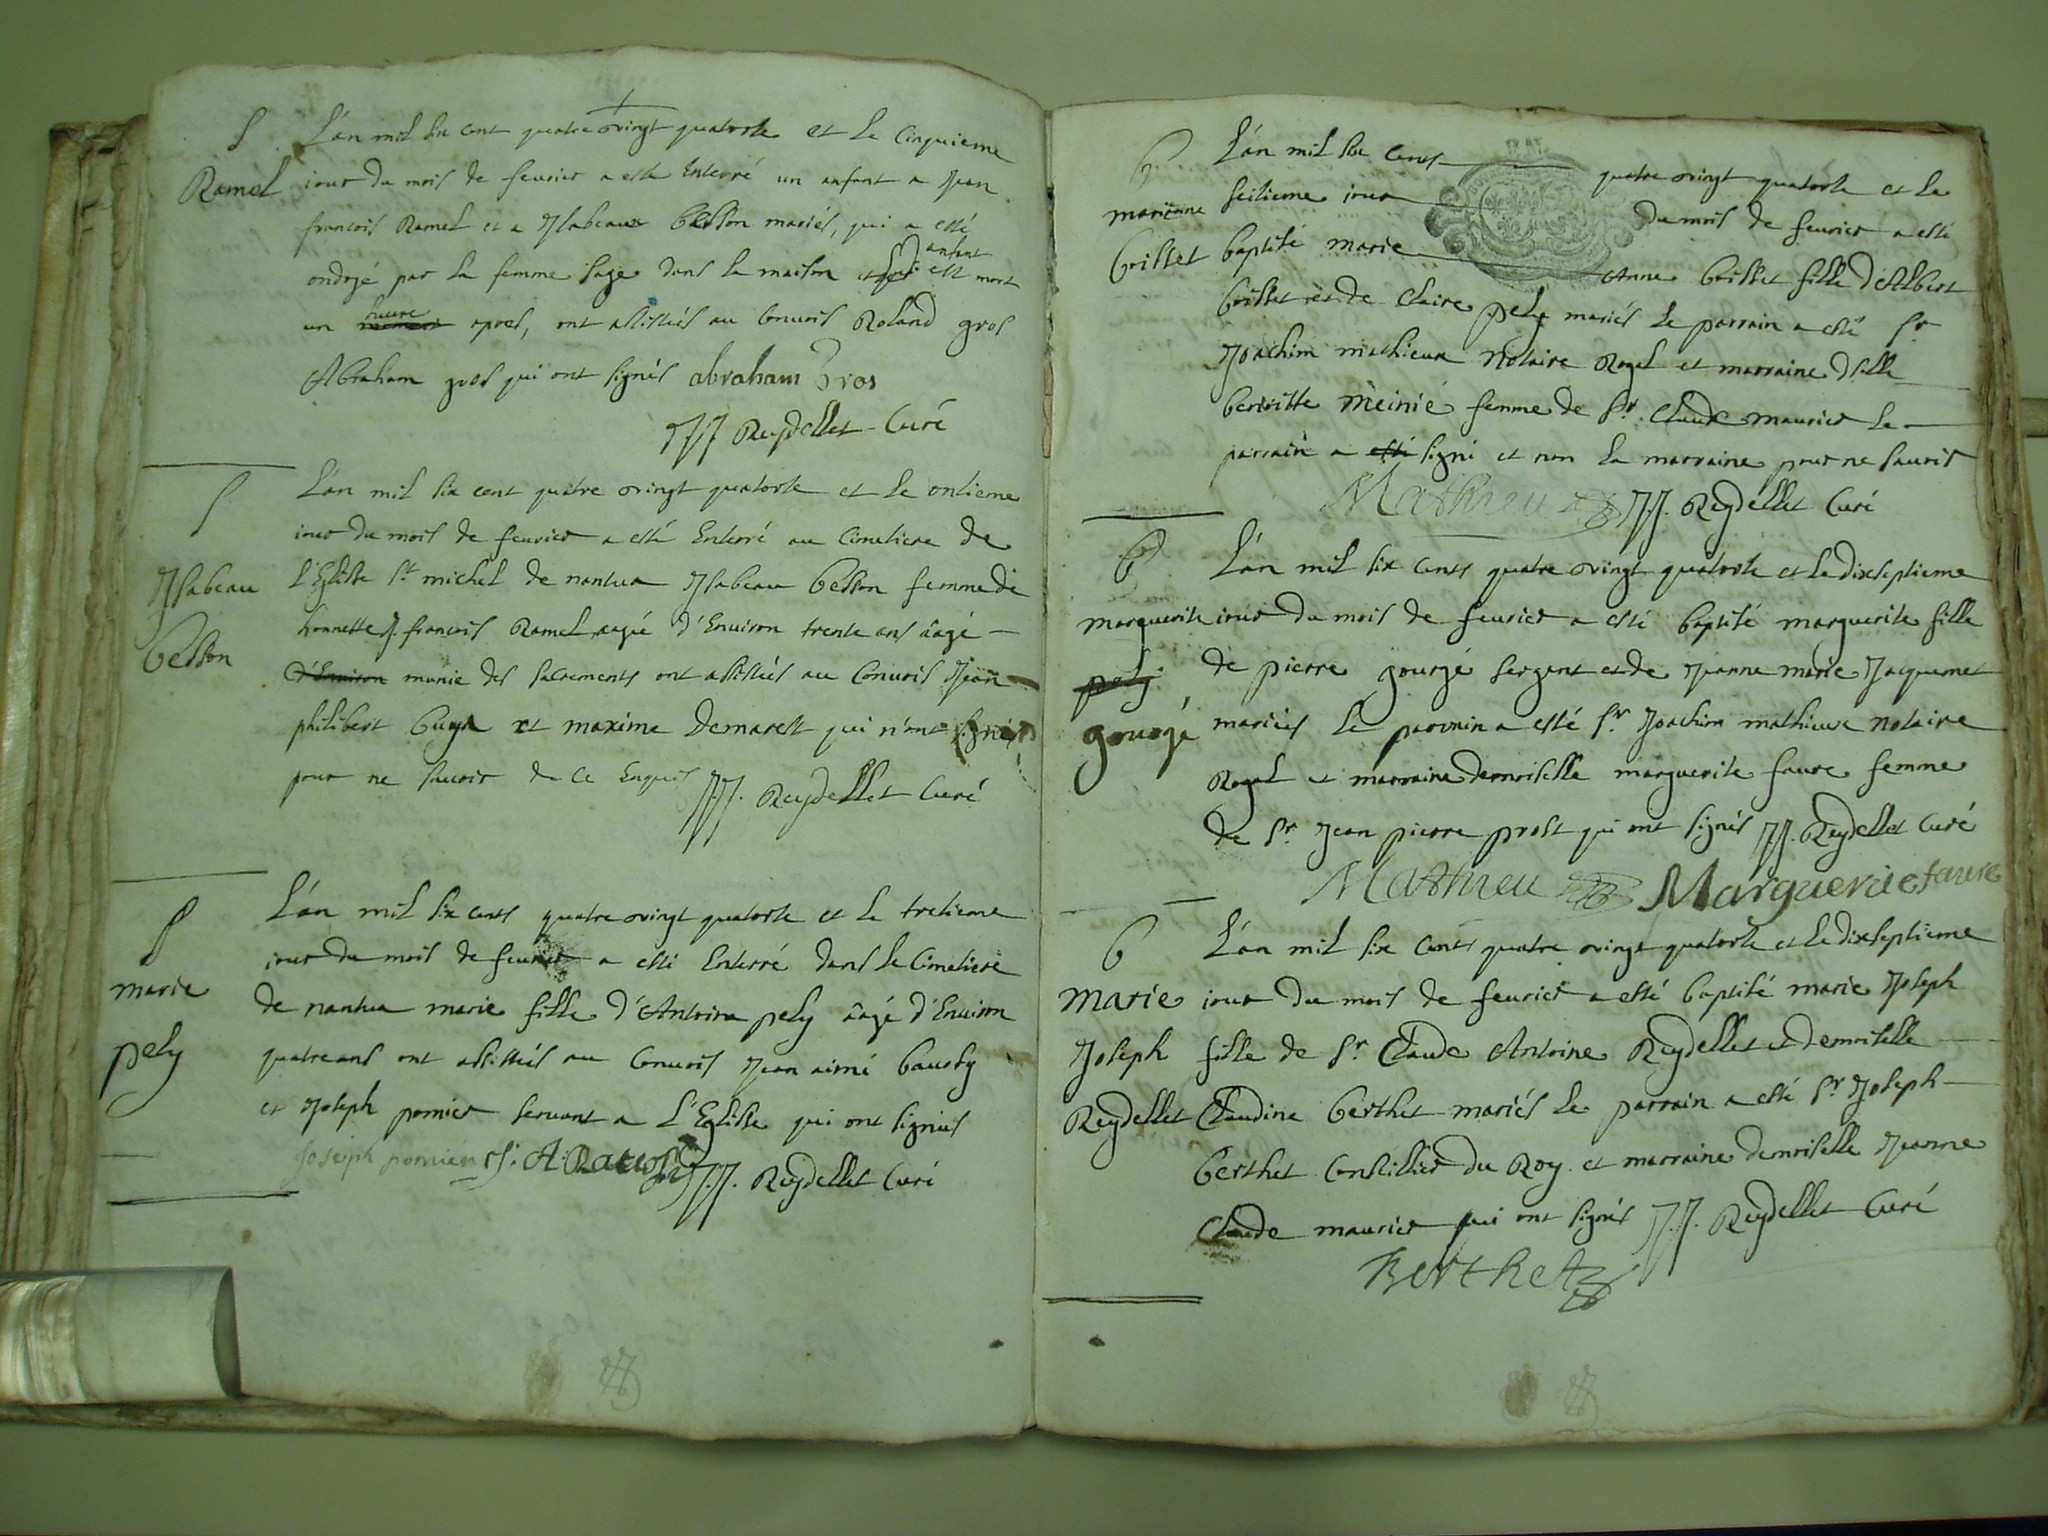 S
Ramel
L'an mil six cent quatre vingt quatorse et le cinquieme
jour du mois de feurier a esté Enterré un enfant a Jean
francois Ramel et a Jsabeau besson mariés, qui a esté
ondoyé par la femme sage dans la maison et enfant est mort
un heure apres, ont assistés au Convois Roland gros
Abraham gros qui ont signés abraham Gros
JJ Reydellet Curé
S
Jsabeau
besson
L'an mil six cent quatre vingt quatorse et le onsieme
jour du mois de feurier a esté Enterré au Cimetiere de
l'Eglise St michel de nantua Jsabeau besson femme de
honnette J. francois Ramel aagée d'Enuiron trente ans âagé
d'Enuiron munie des sacrements ont assistés au Conuois Jean
philibert et maxime Demarest qui n'ont signés
pour ne sauoir de ce Enquis JJ. Reydellet Curé
S
marie
pely
L'an mil six cents quatre vingt quatorse et le tresieme
jour du mois de feurier a esté Enterré dans le Cimetiere
de nantua marie fille d'Antoine pely âagé d'Enuiron
quatre ans ont assistés au Conuois Jean aimé
et Joseph pomier seruant a L'Eglise qui ont signés
Joseph pomier JJ. Reydellet Curé
B
marianne
brisset
L'an mil six cents quatre vingt quatorse et le
seisieme jour du mois de feurier a esté
baptisé marie Anne brisset fille d'Albert
brisset et de Claire pely mariés le parrain a esté Sr
Joachim mathieu Notaire Royal et marraine dselle
meinié femme de Sr. Claude maurier le
parrain a esté signé et non la marraine pour ne sauoir
Mathieu JJ. Reydellet Curé
B
marguerite
pely
gourgé
L'an mil six cents quatre vingt quatorse et le dixseptieme
jour du mois de feurier a esté baptisé marguerite fille
de pierre gourgé sergent et de Jeanne marie Jacquemet
mariés le parrain a esté Sr. Joachim mathieu notaire
Royal et marraine demoiselle marguerite faure femme
de Sr. Jean pierre prost qui ont signés JJ. Reydellet Curé
Mathieu Marguerite faure
B
marie
Joseph
Reydellet
L'an mil six cents quatre vingt quatorse et le dixseptieme
jour du mois de feurier a esté baptisé marie Joseph
fille de Sr. Claude Antoine Reydellet et demoiselle
Claudine berthet mariés le parrain a esté Sr. Joseph
berthet Conseillier du Roy et marraine demoiselle Jeanne
Claude maurier qui ont signés J.J. Reydellet Curé
Berthet